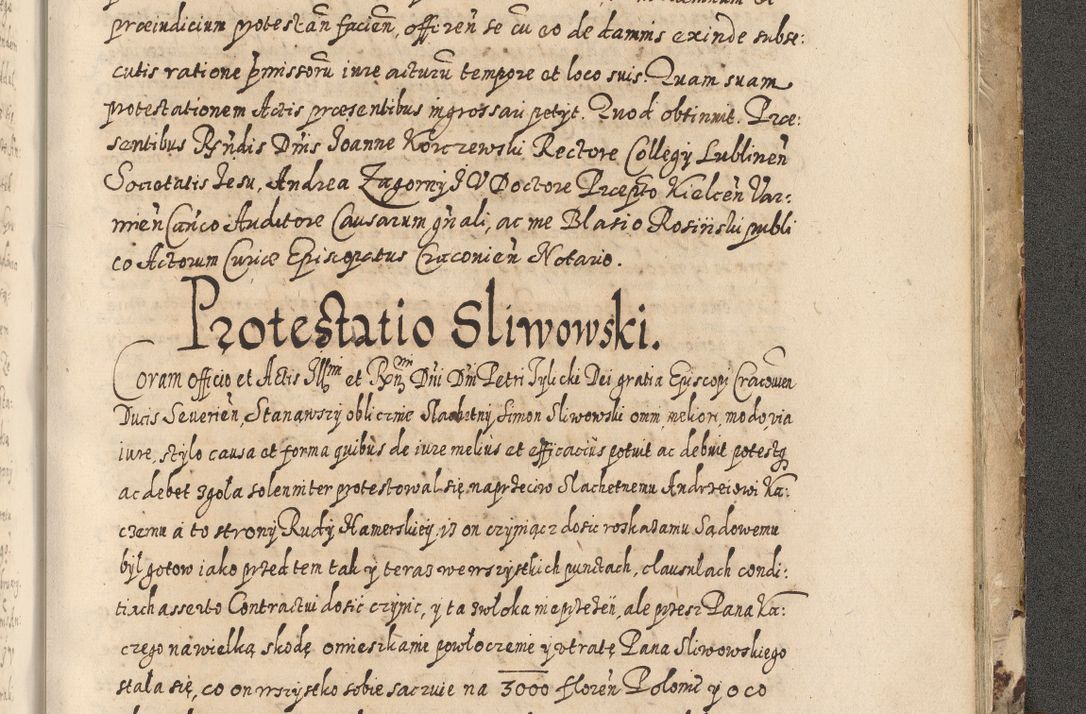 præiudicium protestan̄ facien̄, offeren̄ se cū eo de damnis exinde subse:
cutis ratione p̄missorū iure acturū tempore et loco suis. Quam suam
protestationem Actis præsentibus ingrossari petyt. Quod obtinuit. Præ:
sentibus Rn̄dis Dn̄is Ioanne Korczewski Rectore Collegy Lublinen̄
Societatis Iesu, Andrea Zagorny I V Doctore Præpto Kielcen̄ Var:
mien̄ Can̄co Auditore Causarum gn̄ali, ac me Blasio Rosiński publi
co Actorum Curiæ Episcopatus Cracovien̄ Notario.
Protestatio Sliwowski.
Coram officio et Actis Illmi et Rmi Dn̄i Dn̄i Petri Tylicki Dei gratia Episcopi Cracovien
Ducis Severien̄, Stanąwszy oblicznie Slachetny Simon Sliwowski omni meliori modo, via
iure, stylo causa et forma quibus de iure melius et efficacius potuit ac debuit potestq
ac debet zgoła solenniter protestował się naprzeciw Slachetnemu Andrzeiowi Ka:
czemu a to strony Rudy Hamerskiey, iz on czyniącz dosic roskazamu Sądowemu
był gotow iako przed tem tak y teraz we wszystkich punctach, clausulach condi:
tiach asserto Contractui dosic czynic, y ta zwłoka nie przezen̄, ale przesz Pana Ka:
czego na wielką skodę omieszkanie powłoczenie y utratę Pana Sliwowskiego
stała się, co on wszystko sobie sacuie na 3000 floren̄ Polonic y o co